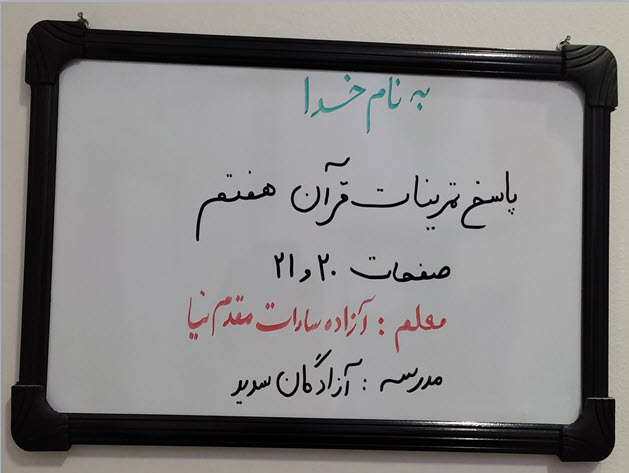 به نام خدا
پاسخ تمرینات قرآن هفتم
صفحات ۲۰ و ۲۱
معلم : آزاده سادات مقدم نیا
مدرسه : آزادگان سدید